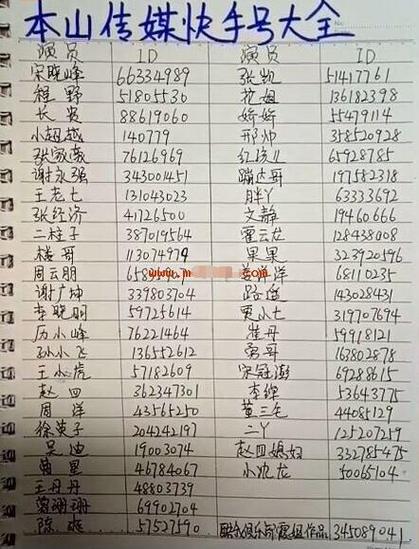 本山传媒快手号大全
演员 ID 演员 ID
宋晓峰 66334989 张凯 51417761
程野 51805530 花姐 136182398
长贵 88619060 娇娇 55479114
小超越 140779 邢帅 358520928
张家豪 76126969 红孩儿 65928785
谢永强 343001451 蹦达哥 197582318
王老七 131043023 胖丫 63333692
张经济 41726500 文静 19460666
二柱子 387019564 翟云龙 128438008
楼哥 113074979 果果 323920196
周云朋 658 洋 68110235
谢广坤 339803704 路遥 143028431
李晓明 59725614 贾小七 319707694
历小峰 76221464 崔丹 59989804
孙小飞 136552612 勇哥 163802878
王小虎 57182609 宋冠澎 69288615
赵四 362347301 李铮 53643775
周洋 43565250 黄三毛 44085129
徐英子 204242197 二丫 125207259
吴迪 19003074 赵四媳妇 332785475
曹里 46784067 小沈龙 50065104
王丹丹 48803739
蓉珊珊 69902704
陈爽 57527590 娱乐 作品 345089041
www.m